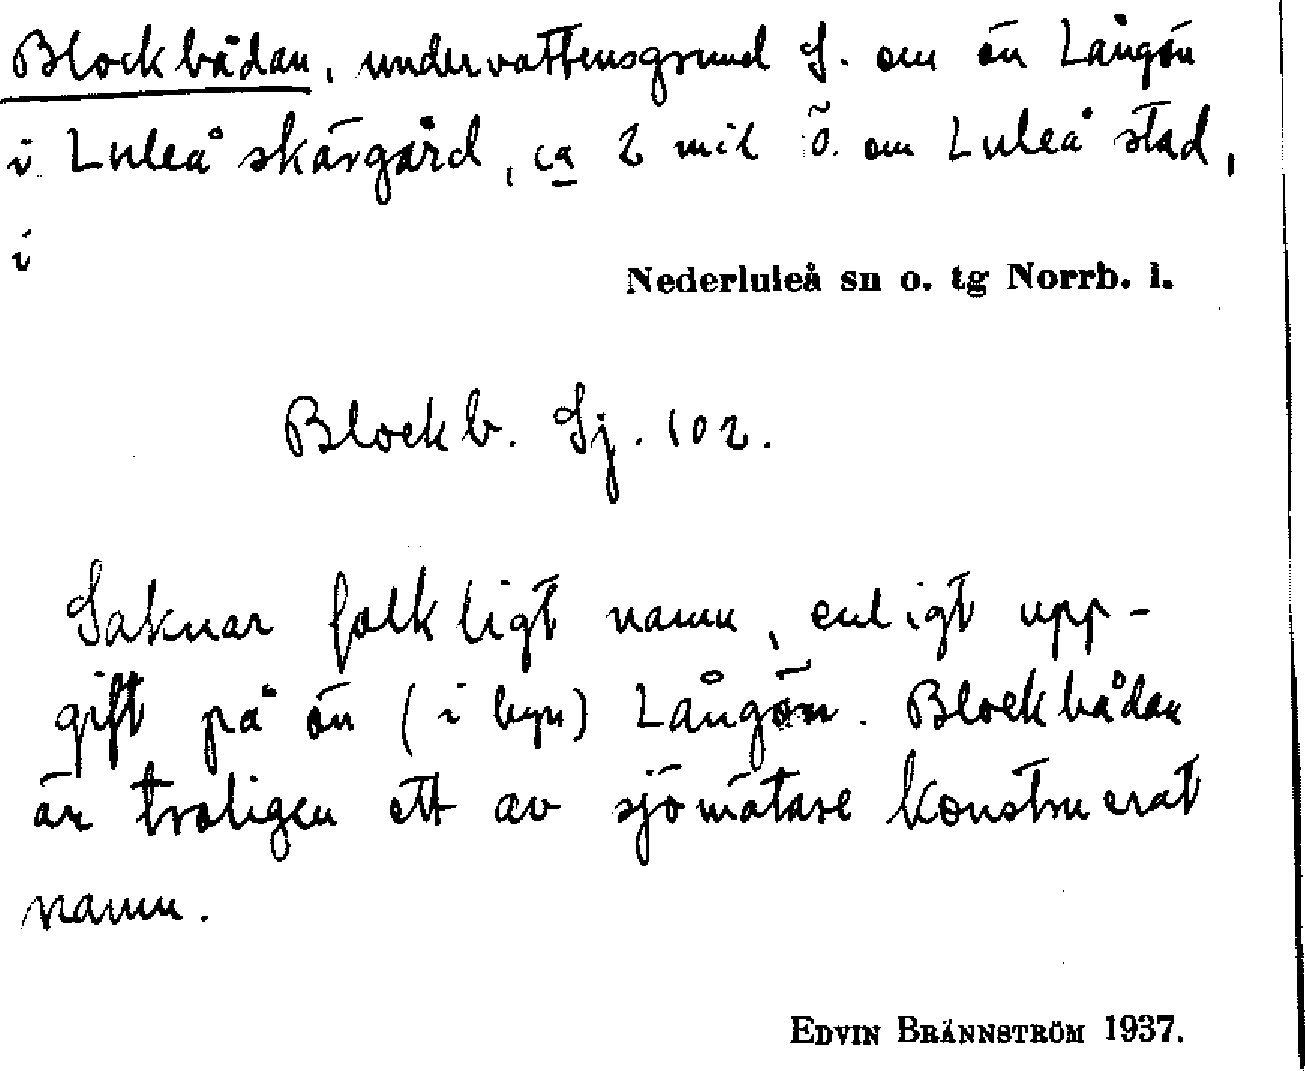 Blockbådan, undervattensgrund S. om ön Långön
i Luleå skärgård, ca 2 mil Ö. om Luleå stad,
i
Nederluleå sn o. tg Norrb. l.
Blockb. Sj. 102.
Saknar folkligt namn, enligt upp-
gift på ön (i byn) Långön. Blockbådan
är troligen ett av sjömätare konstruerat
namn.
EDVIN BRÄNNSTRÖM 1937.